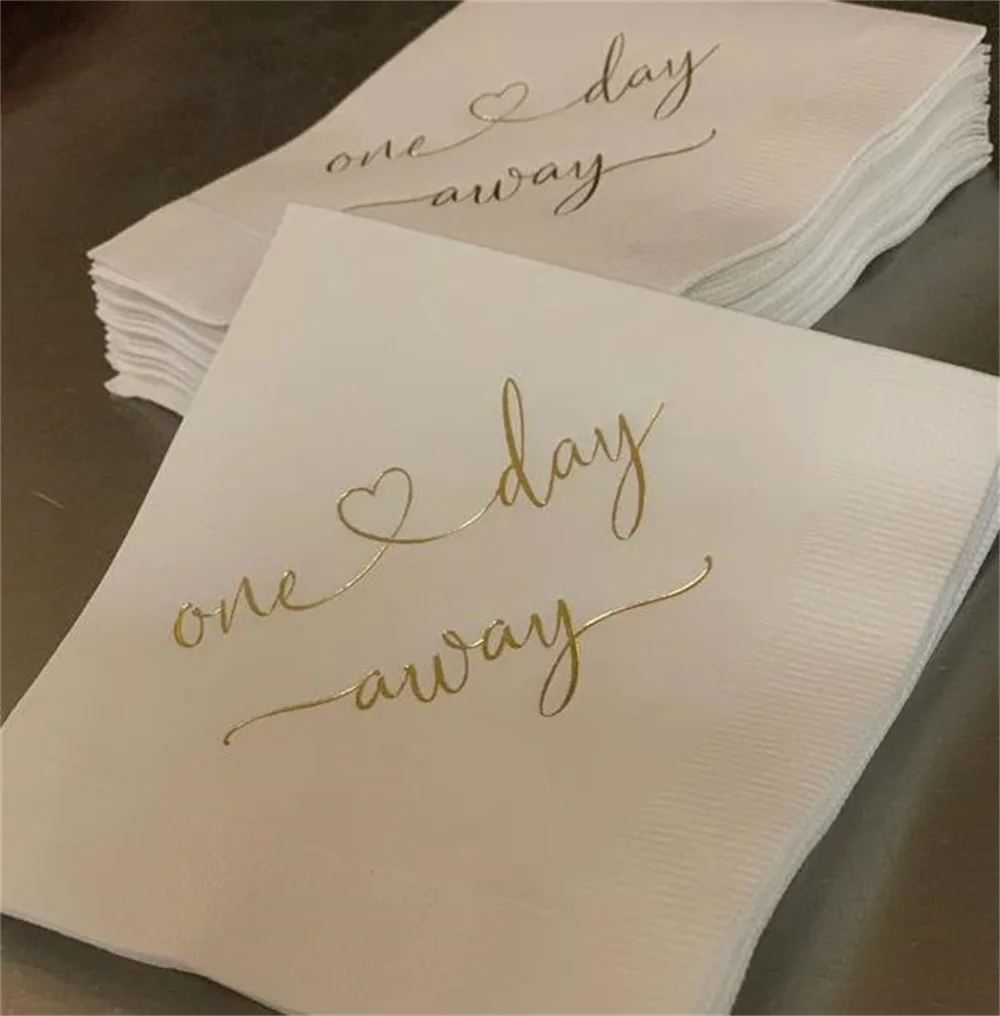 one day
away
one day
away